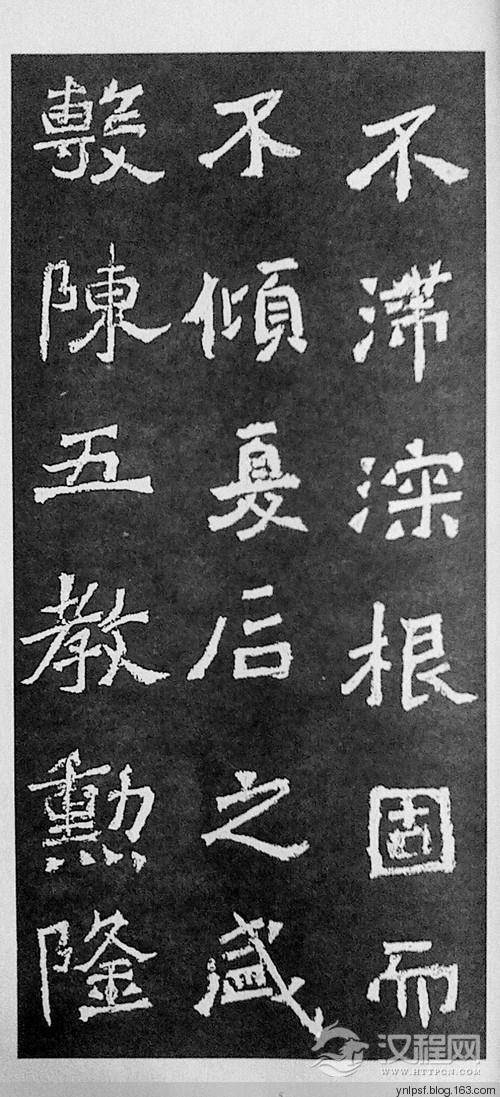 不滞深根固而
不傾夏后之盛
敷陳五教勲隆
汉程网
WWW.HTTPCN.COM
ynlpsf.blog.163.com